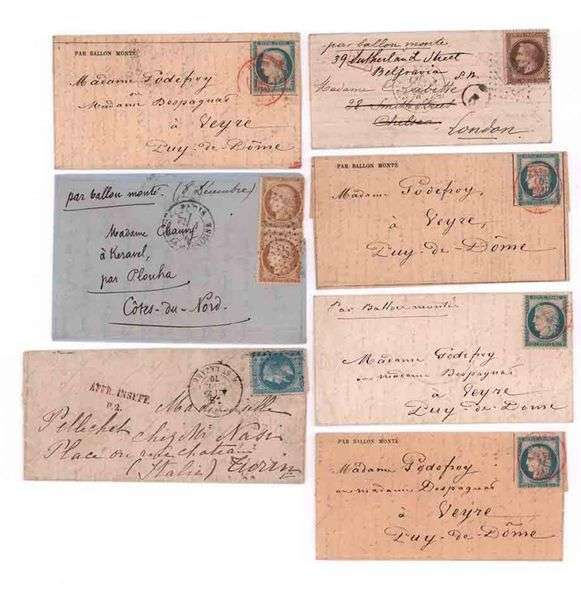 PAR BALLON MONTÉ
Madame Godefroy
Madame Despagnat
à Veyre
Puy-de-Dôme
par ballon monté (8 Décembre)
PARIS
Madame Chauny
à Keravel,
par Plouha
Côtes-du-Nord.
AFFR. INSUFF.
P.2.
Mademoiselle
Pellechet
Place
(Italie) Turin
par ballon monté
39 Sutherland Street
Belgravia S.W.
Madame
28 Smith Street
Chelsea
London
PAR BALLON MONTÉ
Madame Godefroy,
à Veyre,
Puy-de-Dôme
Par Ballon monté
Madame Godefroy
ou madame Despagnat
à Veyre
Puy-de-Dôme
PAR BALLON MONTÉ
Madame Godefroy
ou madame Despagnat
à Veyre
Puy-de-Dôme